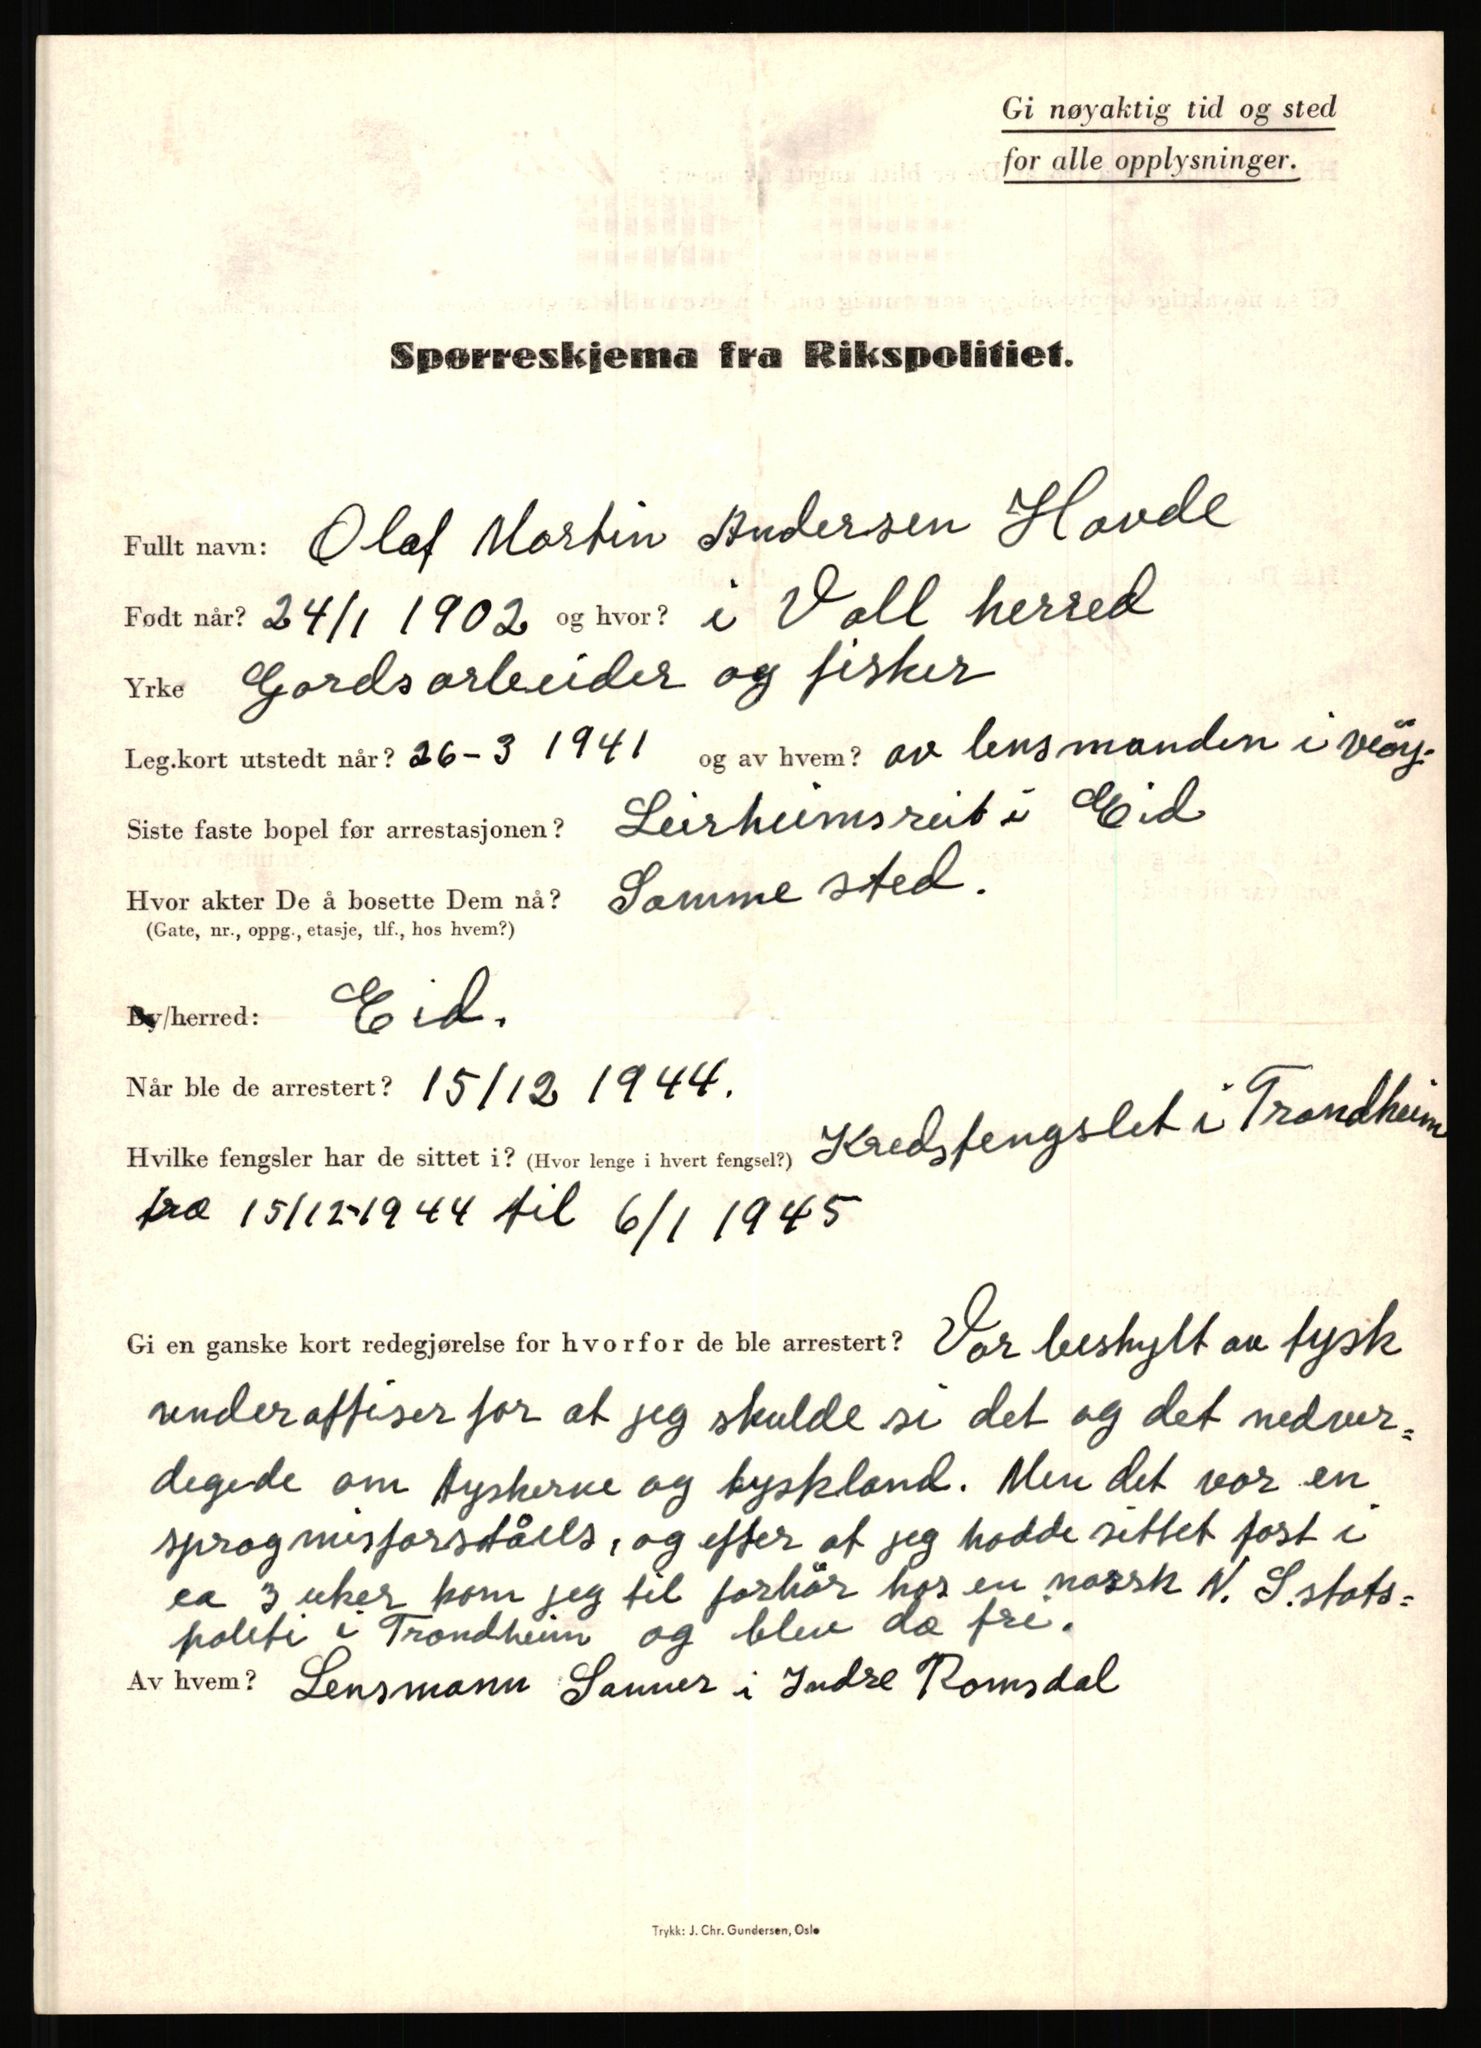 Gi nøyaktig tid og sted
for alle opplysninger.
Spørreskjema fra Rikspolitiet.
Fullt navn: Olaf Martin Andersen Hovde
Født når? 24/1 1902 og hvor? i Voll herred
Yrke Gardsarbeider og fisker
Leg.kort utstedt når? 26-3 1941 og av hvem? av lensmanden i veöy.
Siste faste bopel før arrestasjonen? Leirheimsreit i Eid
Hvor akter De å bosette Dem nå? Samme sted.
(Gate, nr., oppg., etasje, tlf., hos hvem?)
By/herred: Eid.
Når ble de arrestert? 15/12 1944.
Hvilke fengsler har de sittet i? (Hvor lenge i hvert fengsel?) Kredsfengslet i Trondheim
fra 15/12-1944 til 6/1 1945
Gi en ganske kort redegjørelse for hvorfor de ble arrestert? Var beskylt av tysk
underoffiser for at jeg skulde si det og det nedver=
degede om tyskerne og tyskland. Men det var en
sprogmisforståels, og efter at jeg hadde sittet fast i
ca 3 uker kom jeg til forhör hos en norsk N. S. stats=
politi i Trondheim og blev da fri.
Av hvem? Lensmann Sanner i Indre Romsdal
Trykk: J. Chr. Gundersen, Oslo